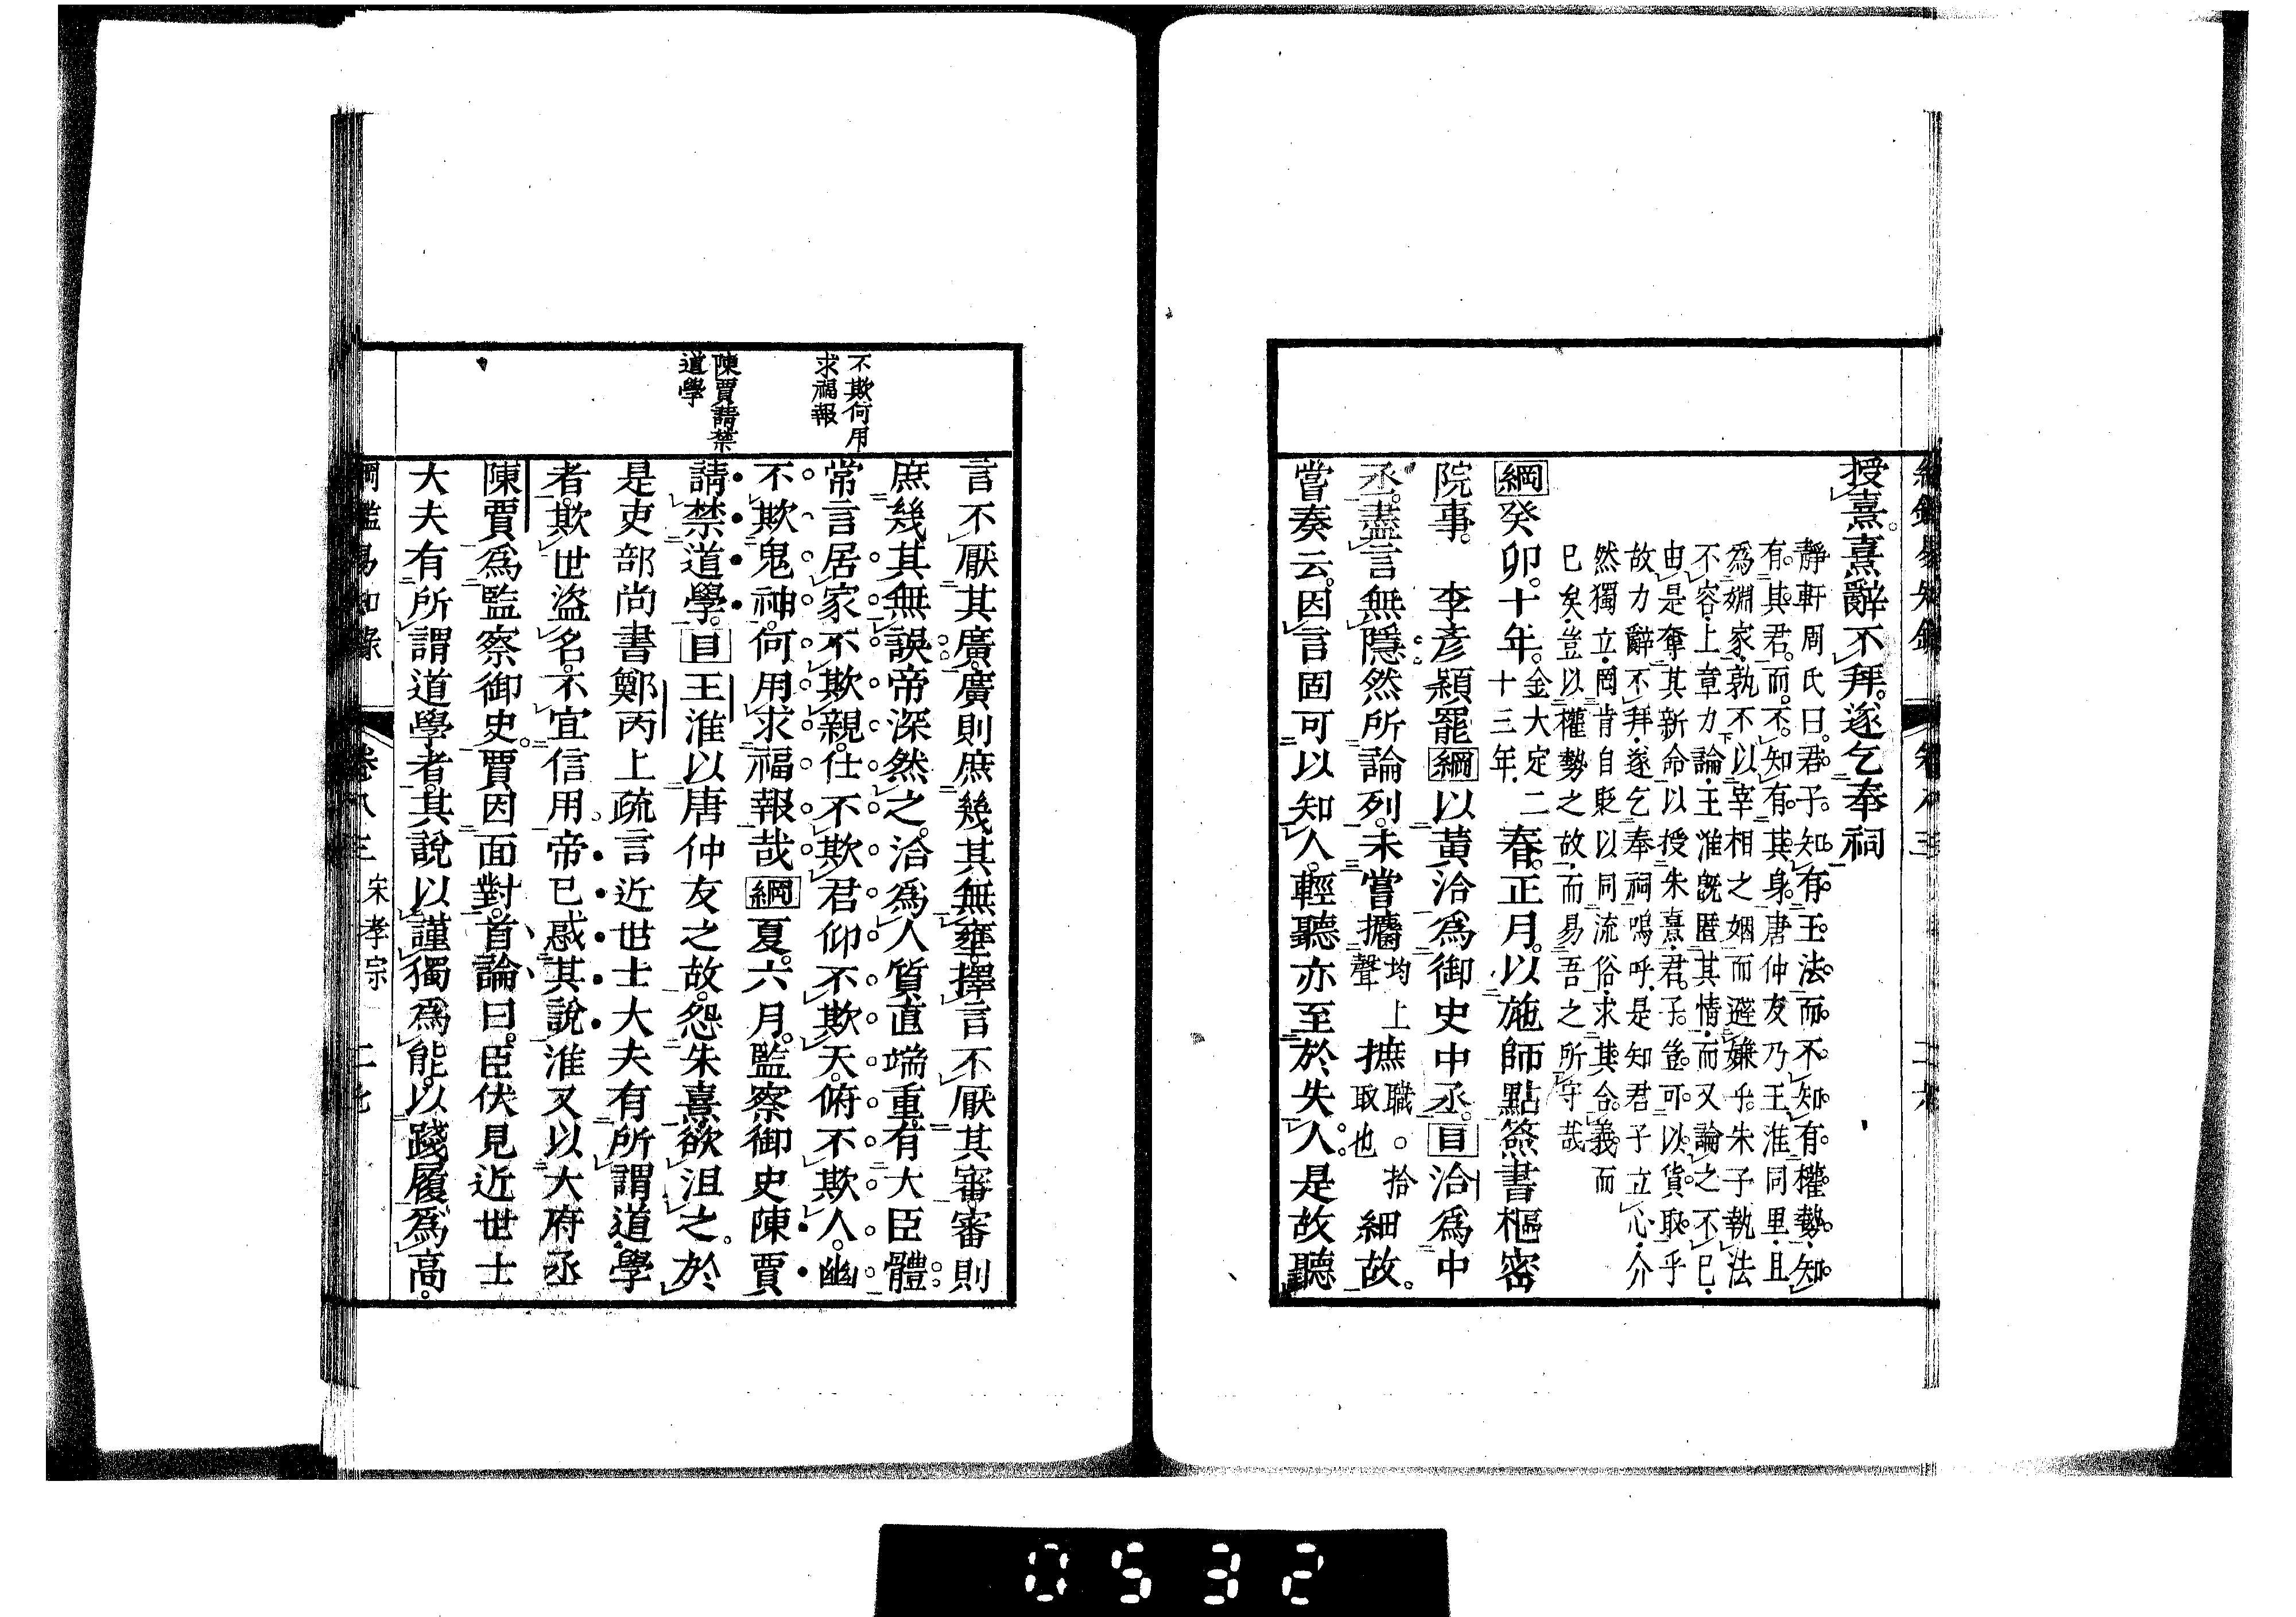 授熹。熹辭不拜。遂乞奉祠
靜軒周氏曰。君子。知有王法。而不知有權勢。知
有其君。而不知有其身。唐仲友乃王淮同里。且
為婣家。孰不以宰相之姻而避嫌乎。朱子執法
不容。上章力論。王淮旣匿其情。而又論之不已。
由是奪其新命以授朱熹。君子。豈可以貨取乎
故力辭不拜。遂乞奉祠。嗚呼。是知君子立心。介
然獨立。罔肯自貶以同流俗。求其合義。而
已矣。豈以權勢之故。而易吾之所守哉
綱癸卯。十年。金大定二十三年。春。正月。以施師點簽書樞密
院事。 李彥穎罷綱以黃洽爲御史中丞。目洽爲中
丞。盡言無隱。然所論列。未嘗攟均上聲摭職。拾取也細故。
嘗奏云。因言固可以知人。輕聽亦至於失人。是故聽
不欺何用
求福報
陳賈請禁
道學
言不厭其廣。廣則庶幾其無壅。擇言不厭其審。審則
庶幾其無誤。帝深然之。洽爲人質直端重。有大臣體。
常言居家不欺親。仕不欺君。仰不欺天。俯不欺人。幽
不欺鬼神。何用求福報哉綱夏。六月。監察御史陳賈
請禁道學。目王淮以唐仲友之故。怨朱熹。欲沮之。於
是吏部尚書鄭丙上疏言近世士大夫有所謂道學
者。欺世盜名。不宜信用。帝已惑其說。淮又以大府丞
陳賈爲監察御史。賈因面對。首論曰。臣伏見近世士
大夫有所謂道學者。其說以謹獨爲能。以踐履爲高。
綱鑑易知錄 卷八三 宋孝宗 二七